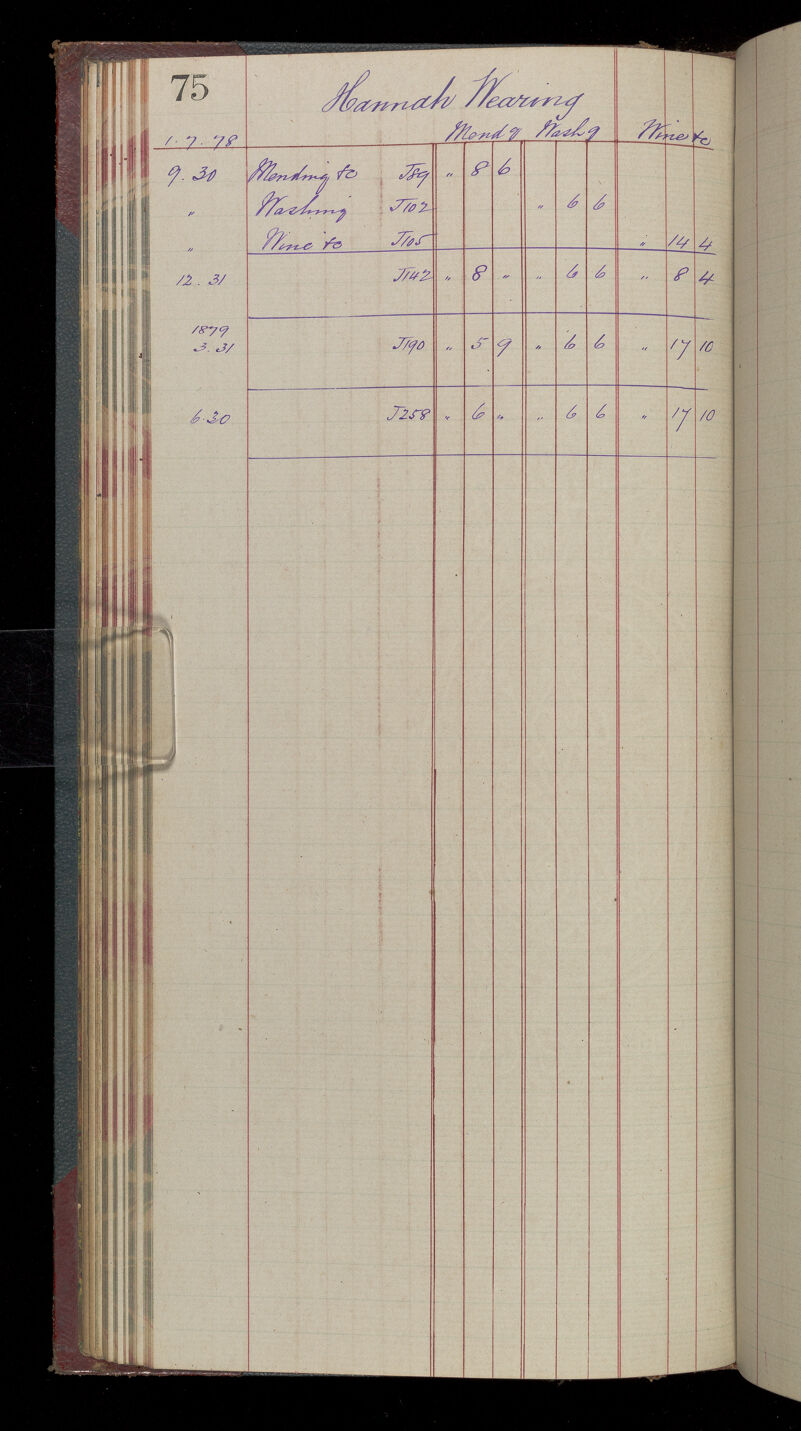 75
Hannah Wearing
1.7.78 Mendg Washg Wine &c
9.30 Mending &c J89 " 8 6
" Washing J102 " 6 6
" Wine &c J105 " 14 4
12.31 J142 " 8 " " 6 6 " 8 4
1879
3.31 J190 " 5 9 " 6 6 " 17 10
6.30 J258 " 6 " " 6 6 " 17 10